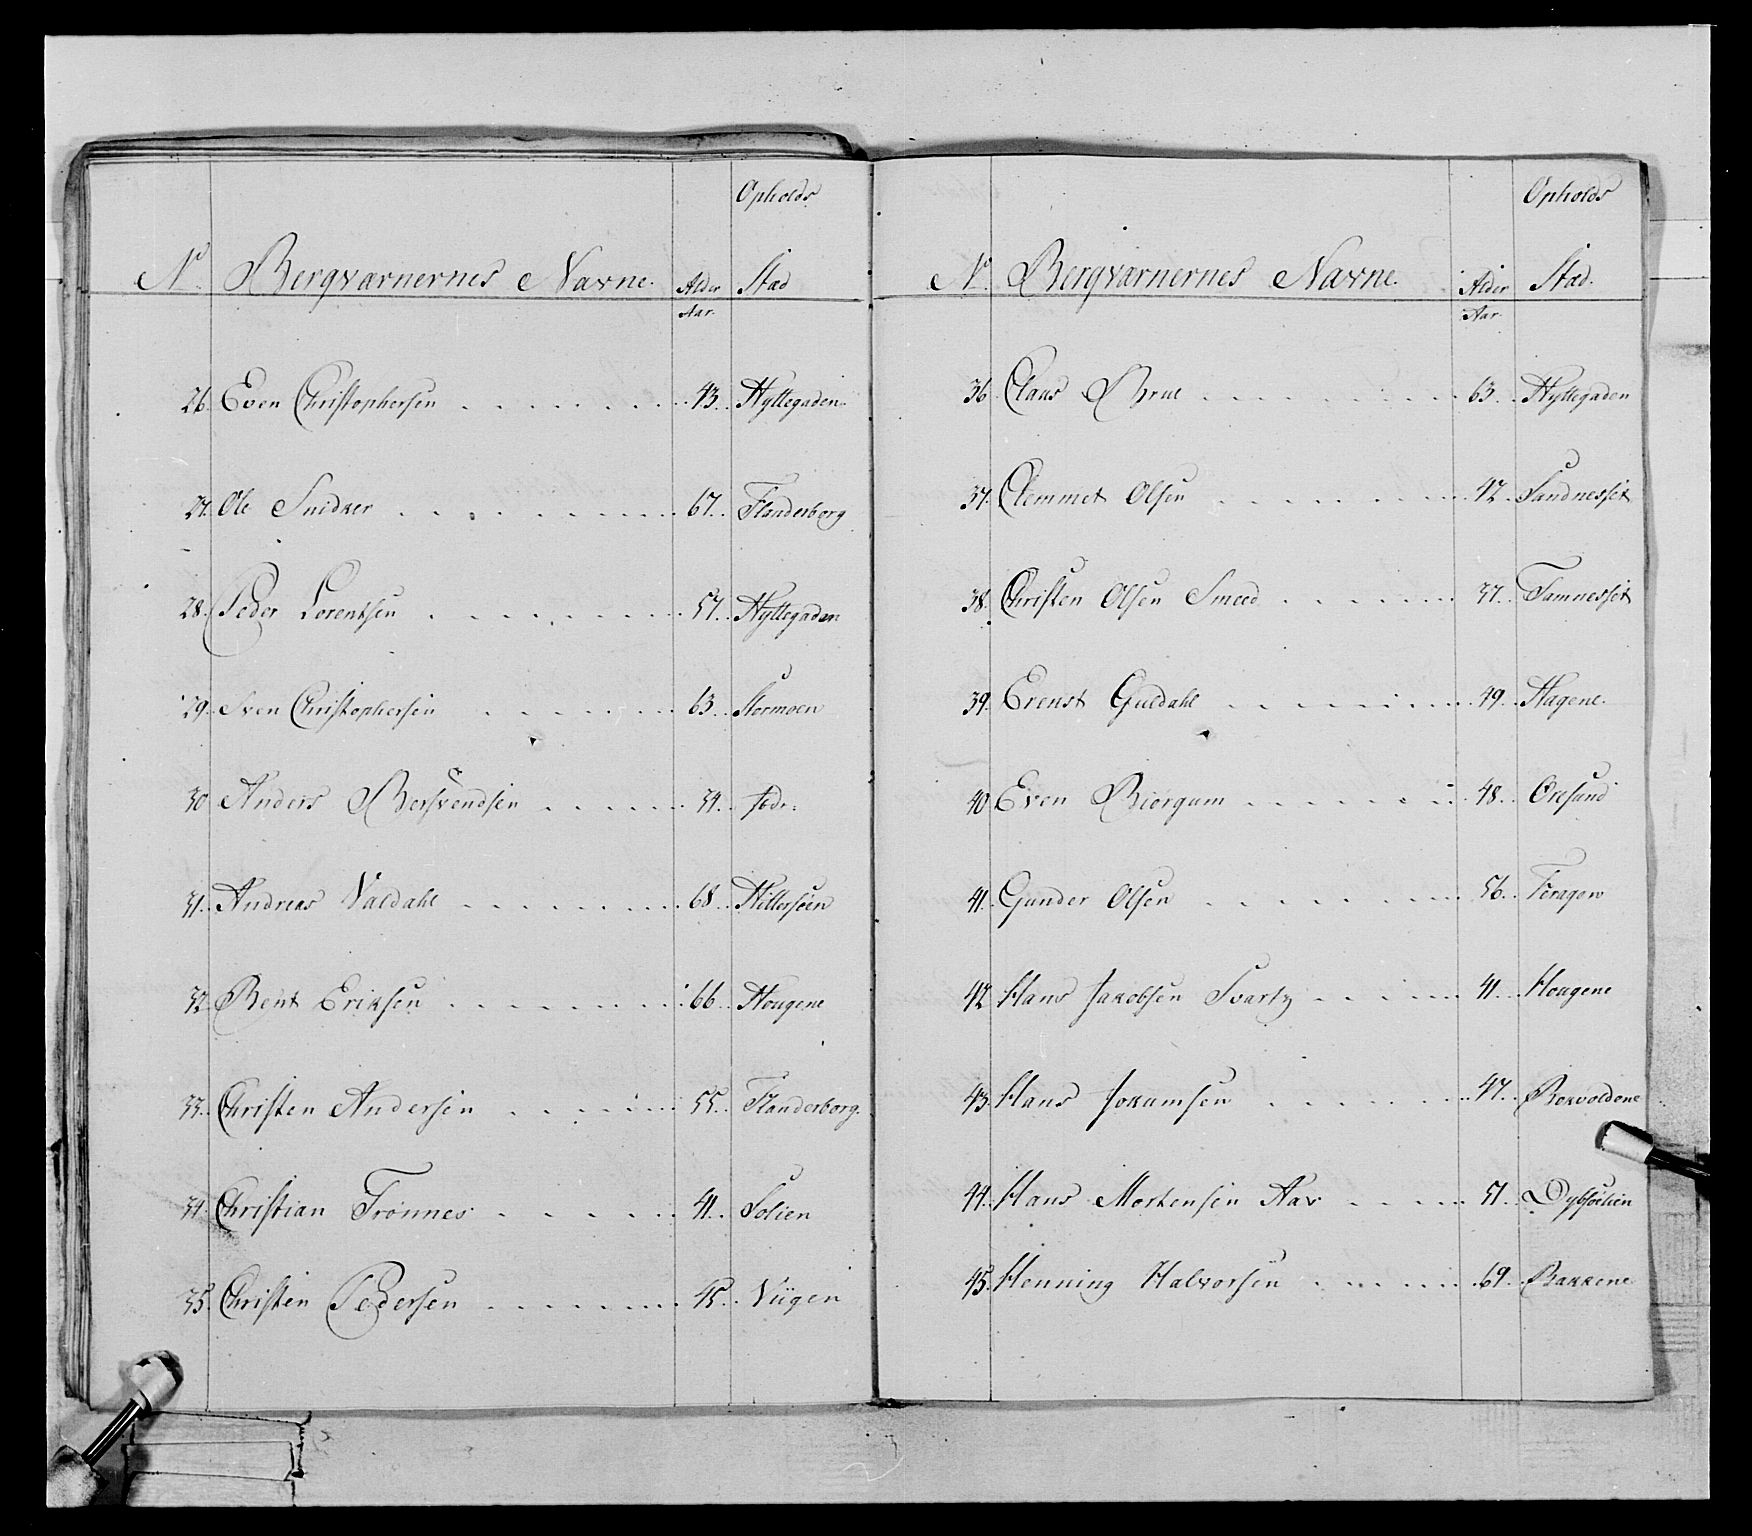 Opholds
No. Bergværnernes Navne. Alder Stæd
Aar.
26. Even Christophersen 43. Hyttegaden
27. Ole Snidker 67. Flanderborg
28. Peder Lorentsen 57. Hyttegaden
29. Sven Christophersen 63. Stormoen
30. Anders Bersvendsen 34. Fædr:
31. Andreas Valdahl 68. Hittersöen
32. Bent Eriksen 66. Hougene
33. Christen Andersen 55. Flanderborg.
34. Christian Trönnes 41. Solien
35. Christen Pedersen 45. Viigen
Opholds
No. Bergværnernes Navne. Alder Stæd.
Aar.
36. Claus Brue 63. Hyttegaden
37. Clemmet Olsen 42. Sundnesset
38. Christen Olsen Smeed 37. Tamnesset
39. Erenst Guldahl 49. Hagene.
40. Even Biörgum 48. Oresund
41. Gunder Olsen 56. Feragen
42. Hans Jakobsen Svartz 41. Hougene
43. Hans Jokumsen 47. Bekvoldene
44. Hans Mortensen Aas 51. Dybsölien
45. Henning Halvorsen 69. Bakkene